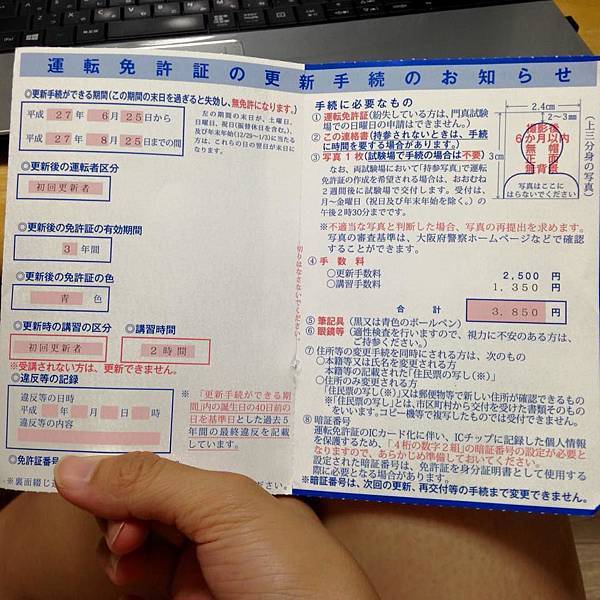 運転免許証の更新手続のお知らせ
◎更新手続ができる期間(この期間の末日を過ぎると失効し、無免許になります。)
平成 27年 6月25日から
平成 27年 8月25日までの間
左の期間の末日が、土曜日、
日曜日、祝日(振替休日を含む。)、
及び年末年始(12/29~1/3)に当たる
方は、これらの日の翌日が末日に
なります。
◎更新後の運転者区分
初回更新者
◎更新後の免許証の有効期間
3 年間
◎更新後の免許証の色
青 色
◎更新時の講習の区分
初回更新者
◎講習時間
2時間
※受講されない方は、更新できません。
◎違反等の記録
違反等の日時
平成 年 月 日 時
違反等の内容
※「更新手続ができる期
間」内の誕生日の40日前の
日を基準日とした過去5
年間の最終違反を記載
しています。
◎免許証番号
※裏面綴じ
ださい。
切りはなさないでください。
手続に必要なもの
① 運転免許証(紛失している方は、門真試験
場での日曜日の申請はできません。)
② この連絡書(持参されないときは、手続
に時間を要する場合があります。)
③ 写真1枚(試験場で手続の場合は不要)
なお、両試験場において「持参写真」で運転
免許証の作成を希望される場合は、おおむね
2週間後に試験場で交付します。受付は、
月~金曜日(祝日及び年末年始を除く。)の
午後2時30分までです。
2.4cm
2~3mm
3cm
撮影後
6か月以内
無帽
正面
無背景
写真はここに
はらないでください
(上三分身の写真)
※不適当な写真と判断した場合、写真の再提出を求めます。
写真の審査基準は、大阪府警察ホームページなどで確認
することができます。
④ 手数料
○更新手数料 2,500 円
○講習手数料 1,350 円
合計 3,850 円
⑤ 筆記具(黒又は青色のボールペン)
⑥ 眼鏡等(適性検査を行いますので、視力に不安のある方は、
ご持参ください。)
⑦ 住所等の変更手続を同時にされる方は、次のもの
○本籍又は氏名を変更される方
本籍等の記載された「住民票の写し(※)」
○住所のみ変更される方
「住民票の写し(※)」又は郵便物等で新しい住所が確認できるもの
※「住民票の写し」とは、市区町村から交付を受けた書類そのもの
をいいます。コピー機等で複写したものでは受付できません。
⑧ 暗証番号
運転免許証のICカード化に伴い、ICチップに記録した個人情報
を保護するため、「4桁の数字2組」の暗証番号の設定が必要と
なりますので、あらかじめ準備しておいてください。
設定された暗証番号は、免許証を身分証明書として使用する
際に必要となる場合があります。
※暗証番号は、次回の更新、再交付等の手続まで変更できません。